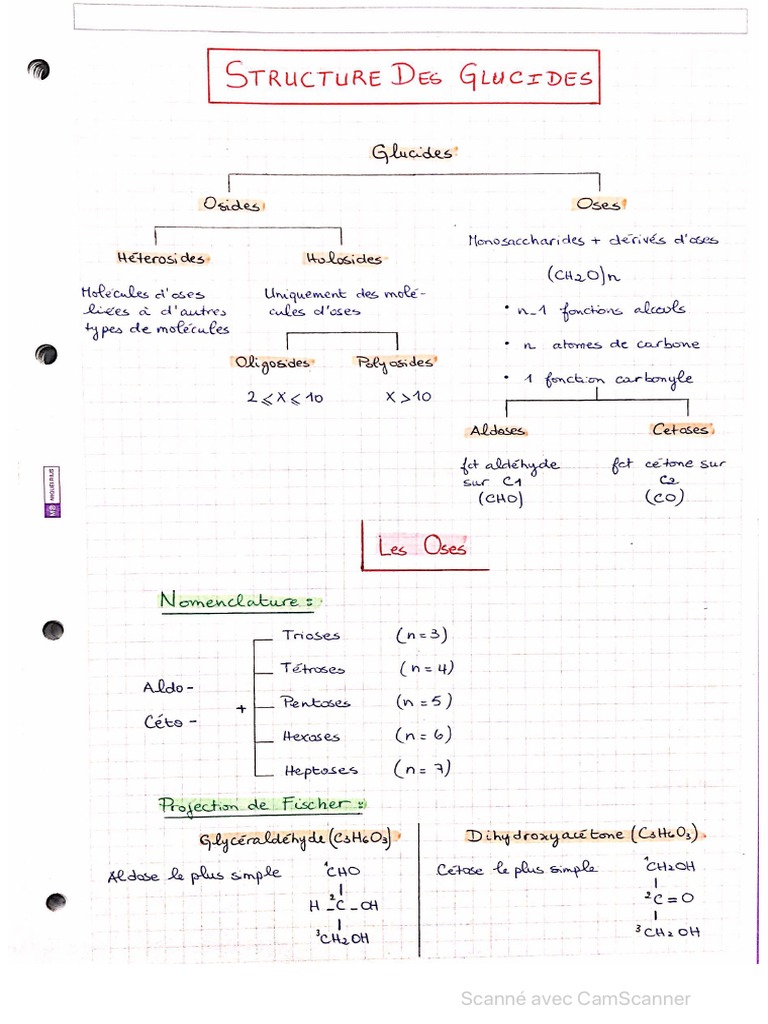 STRUCTURE DES GLUCIDES
Glucides
Osides
Oses
Hétérosides
Holosides
Molécules d'oses
liées à d'autres
types de molécules
Uniquement des molé-
cules d'oses
Oligosides
Polyosides
2 ⩽ X ⩽ 10
X > 10
Monosaccharides + dérivés d'oses
(CH2O)n
• n-1 fonctions alcools
• n atomes de carbone
• 1 fonction carbonyle
Aldoses
Cetoses
fct aldéhyde
sur C1
(CHO)
fct cétone sur
C2
(CO)
Les Oses
Nomenclature :
Aldo-
Céto-
+
Trioses (n=3)
Tétroses (n=4)
Pentoses (n=5)
Hexoses (n=6)
Heptoses (n=7)
Projection de Fischer :
Glycéraldéhyde (C3H6O3)
Aldose le plus simple
1CHO
H - 2C - OH
3CH2OH
Dihydroxyacétone (C3H6O3)
Cétose le plus simple
1CH2OH
2C = O
3CH2OH
Scanné avec CamScanner